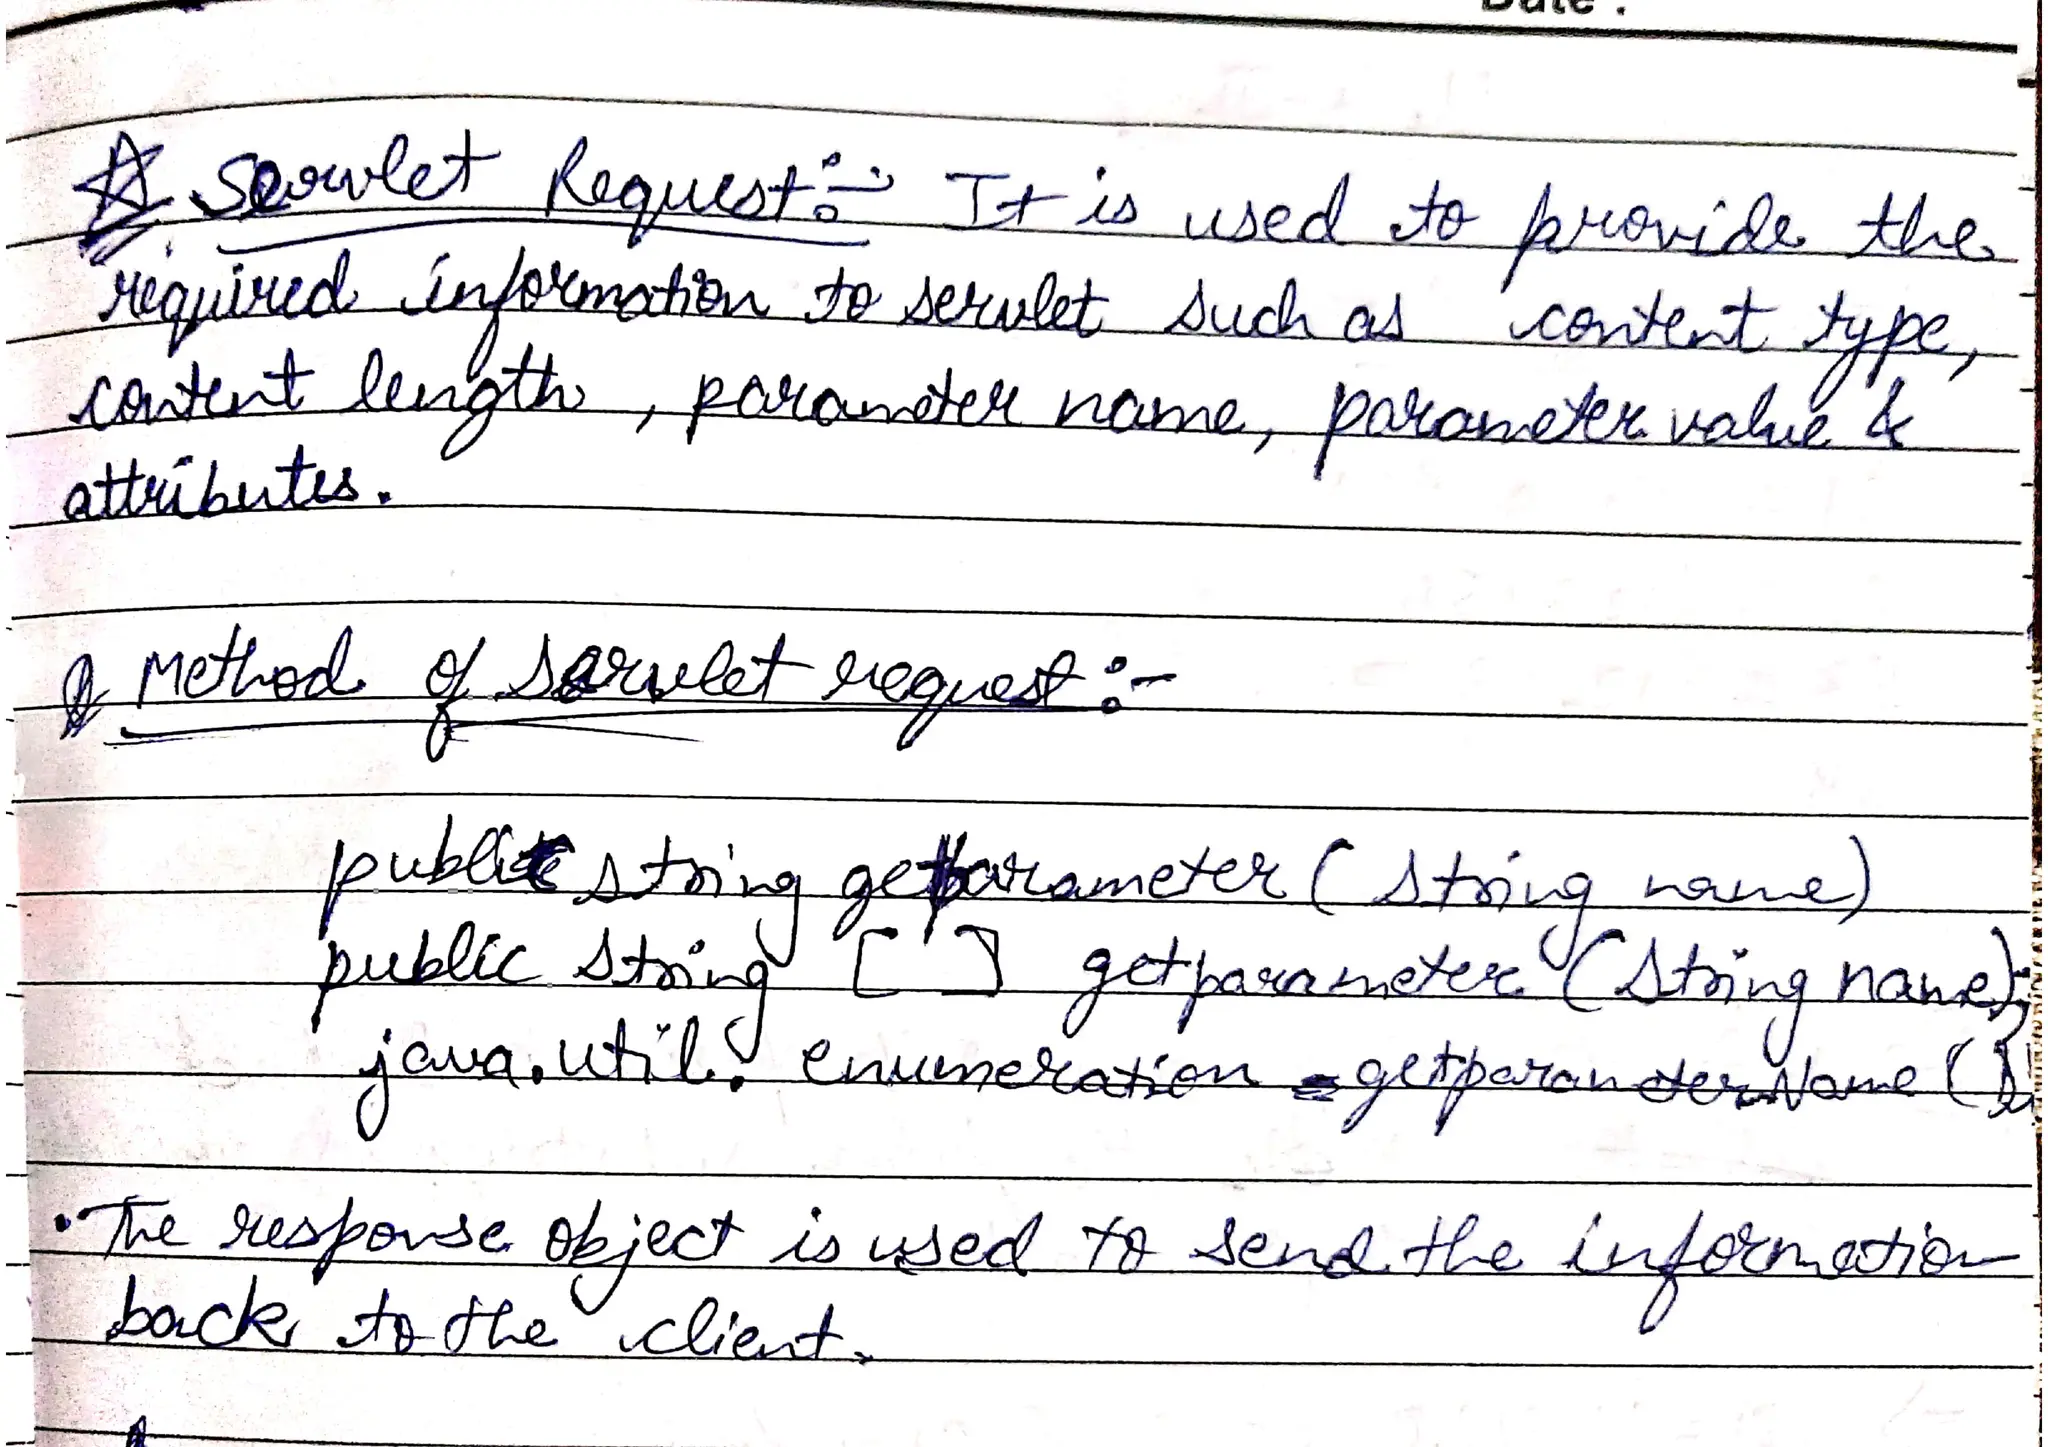 Date :
Servlet Request :- It is used to provide the
required information to servlet such as content type,
content length, parameter name, parameter value &
attributes.
Method of servlet request :-
public string getparameter (string name)
public string [ ] getparameter (string name);
java.util. enumeration getparameterName (
• The response object is used to send the information
back to the client.